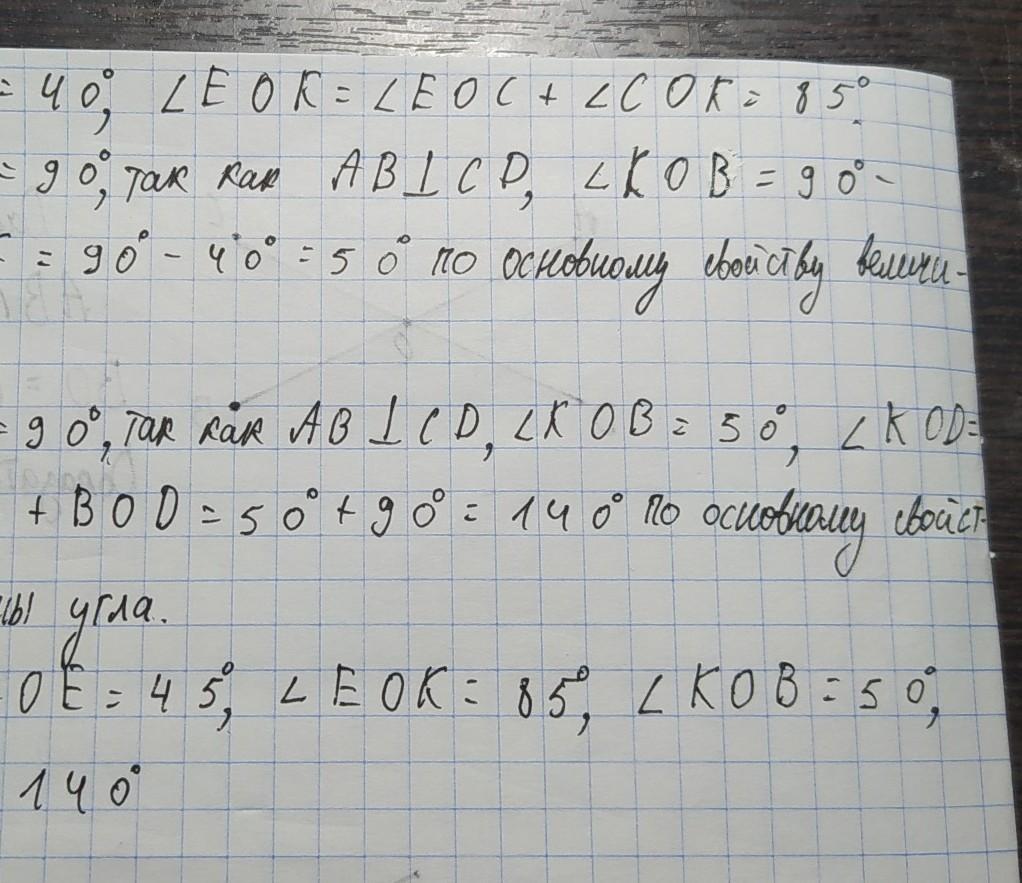 = 40°, ∠EOK = ∠EOC + ∠COK = 85°.
= 90°, так как AB⊥CD, ∠KOB = 90° -
= 90° - 40° = 50° по основному свойству величи-
= 90°, так как AB⊥CD, ∠KOB = 50°, ∠KOD=
+ BOD = 50° + 90° = 140° по основному свойст-
ны угла.
OE = 45°, ∠EOK = 85°, ∠KOB = 50°,
140°